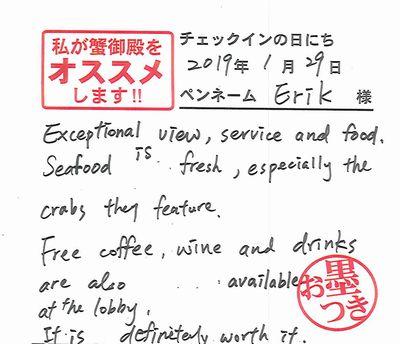 私が蟹御殿を
オススメ
します!!
チェックインの日にち
2019年 1月 29日
ペンネーム Erik 様
Exceptional view, service and food.
Seafood is fresh, especially the
crabs they feature.
Free coffee, wine and drinks
are also available
at the lobby.
It is definitely worth it.
お墨
つき